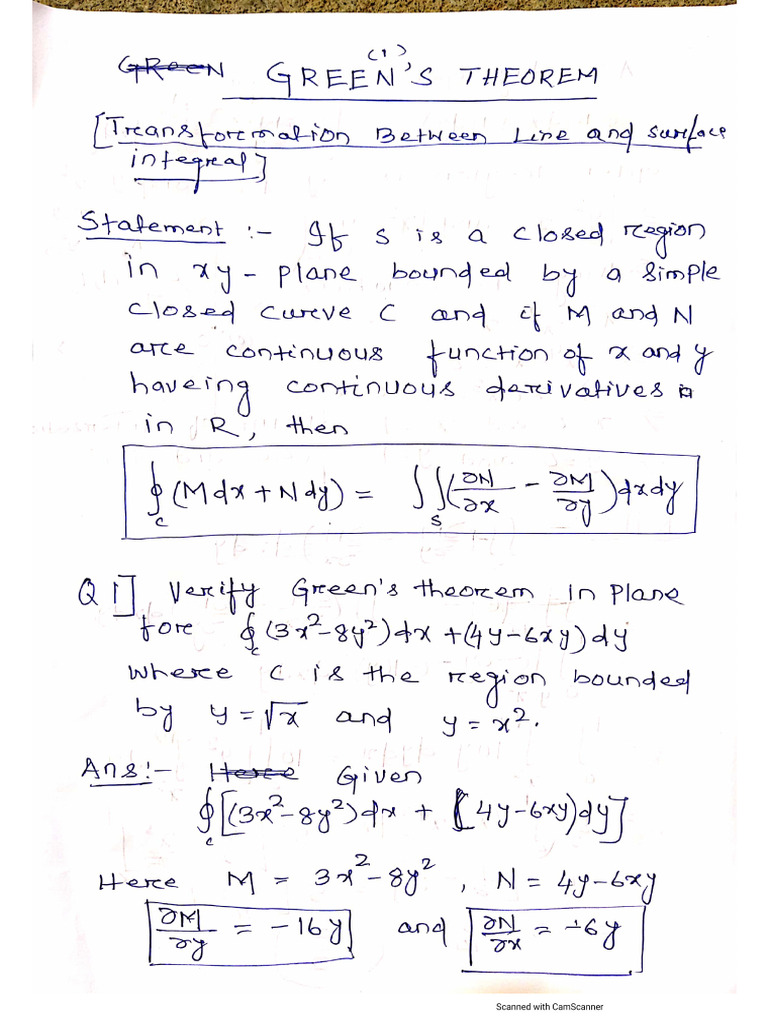 (1)
GReeN GREEN'S THEOREM
[Transformation Between Line and surface
integral]
Statement :- If S is a closed region
in xy-plane bounded by a simple
closed curve C and if M and N
are continuous function of x and y
haveing continuous derivatives
in R, then
∮_C (M dx + N dy) = ∬_S (∂N/∂x - ∂M/∂y) dx dy
Q 1] Verify Green's theorem in plane
for ∮_C (3x² - 8y²) dx + (4y - 6xy) dy
where C is the region bounded
by y = √x and y = x².
Ans :- Here Given
∮_C [(3x² - 8y²) dx + (4y - 6xy) dy]
Here M = 3x² - 8y² , N = 4y - 6xy
∂M/∂y = -16y and ∂N/∂x = -6y
Scanned with CamScanner